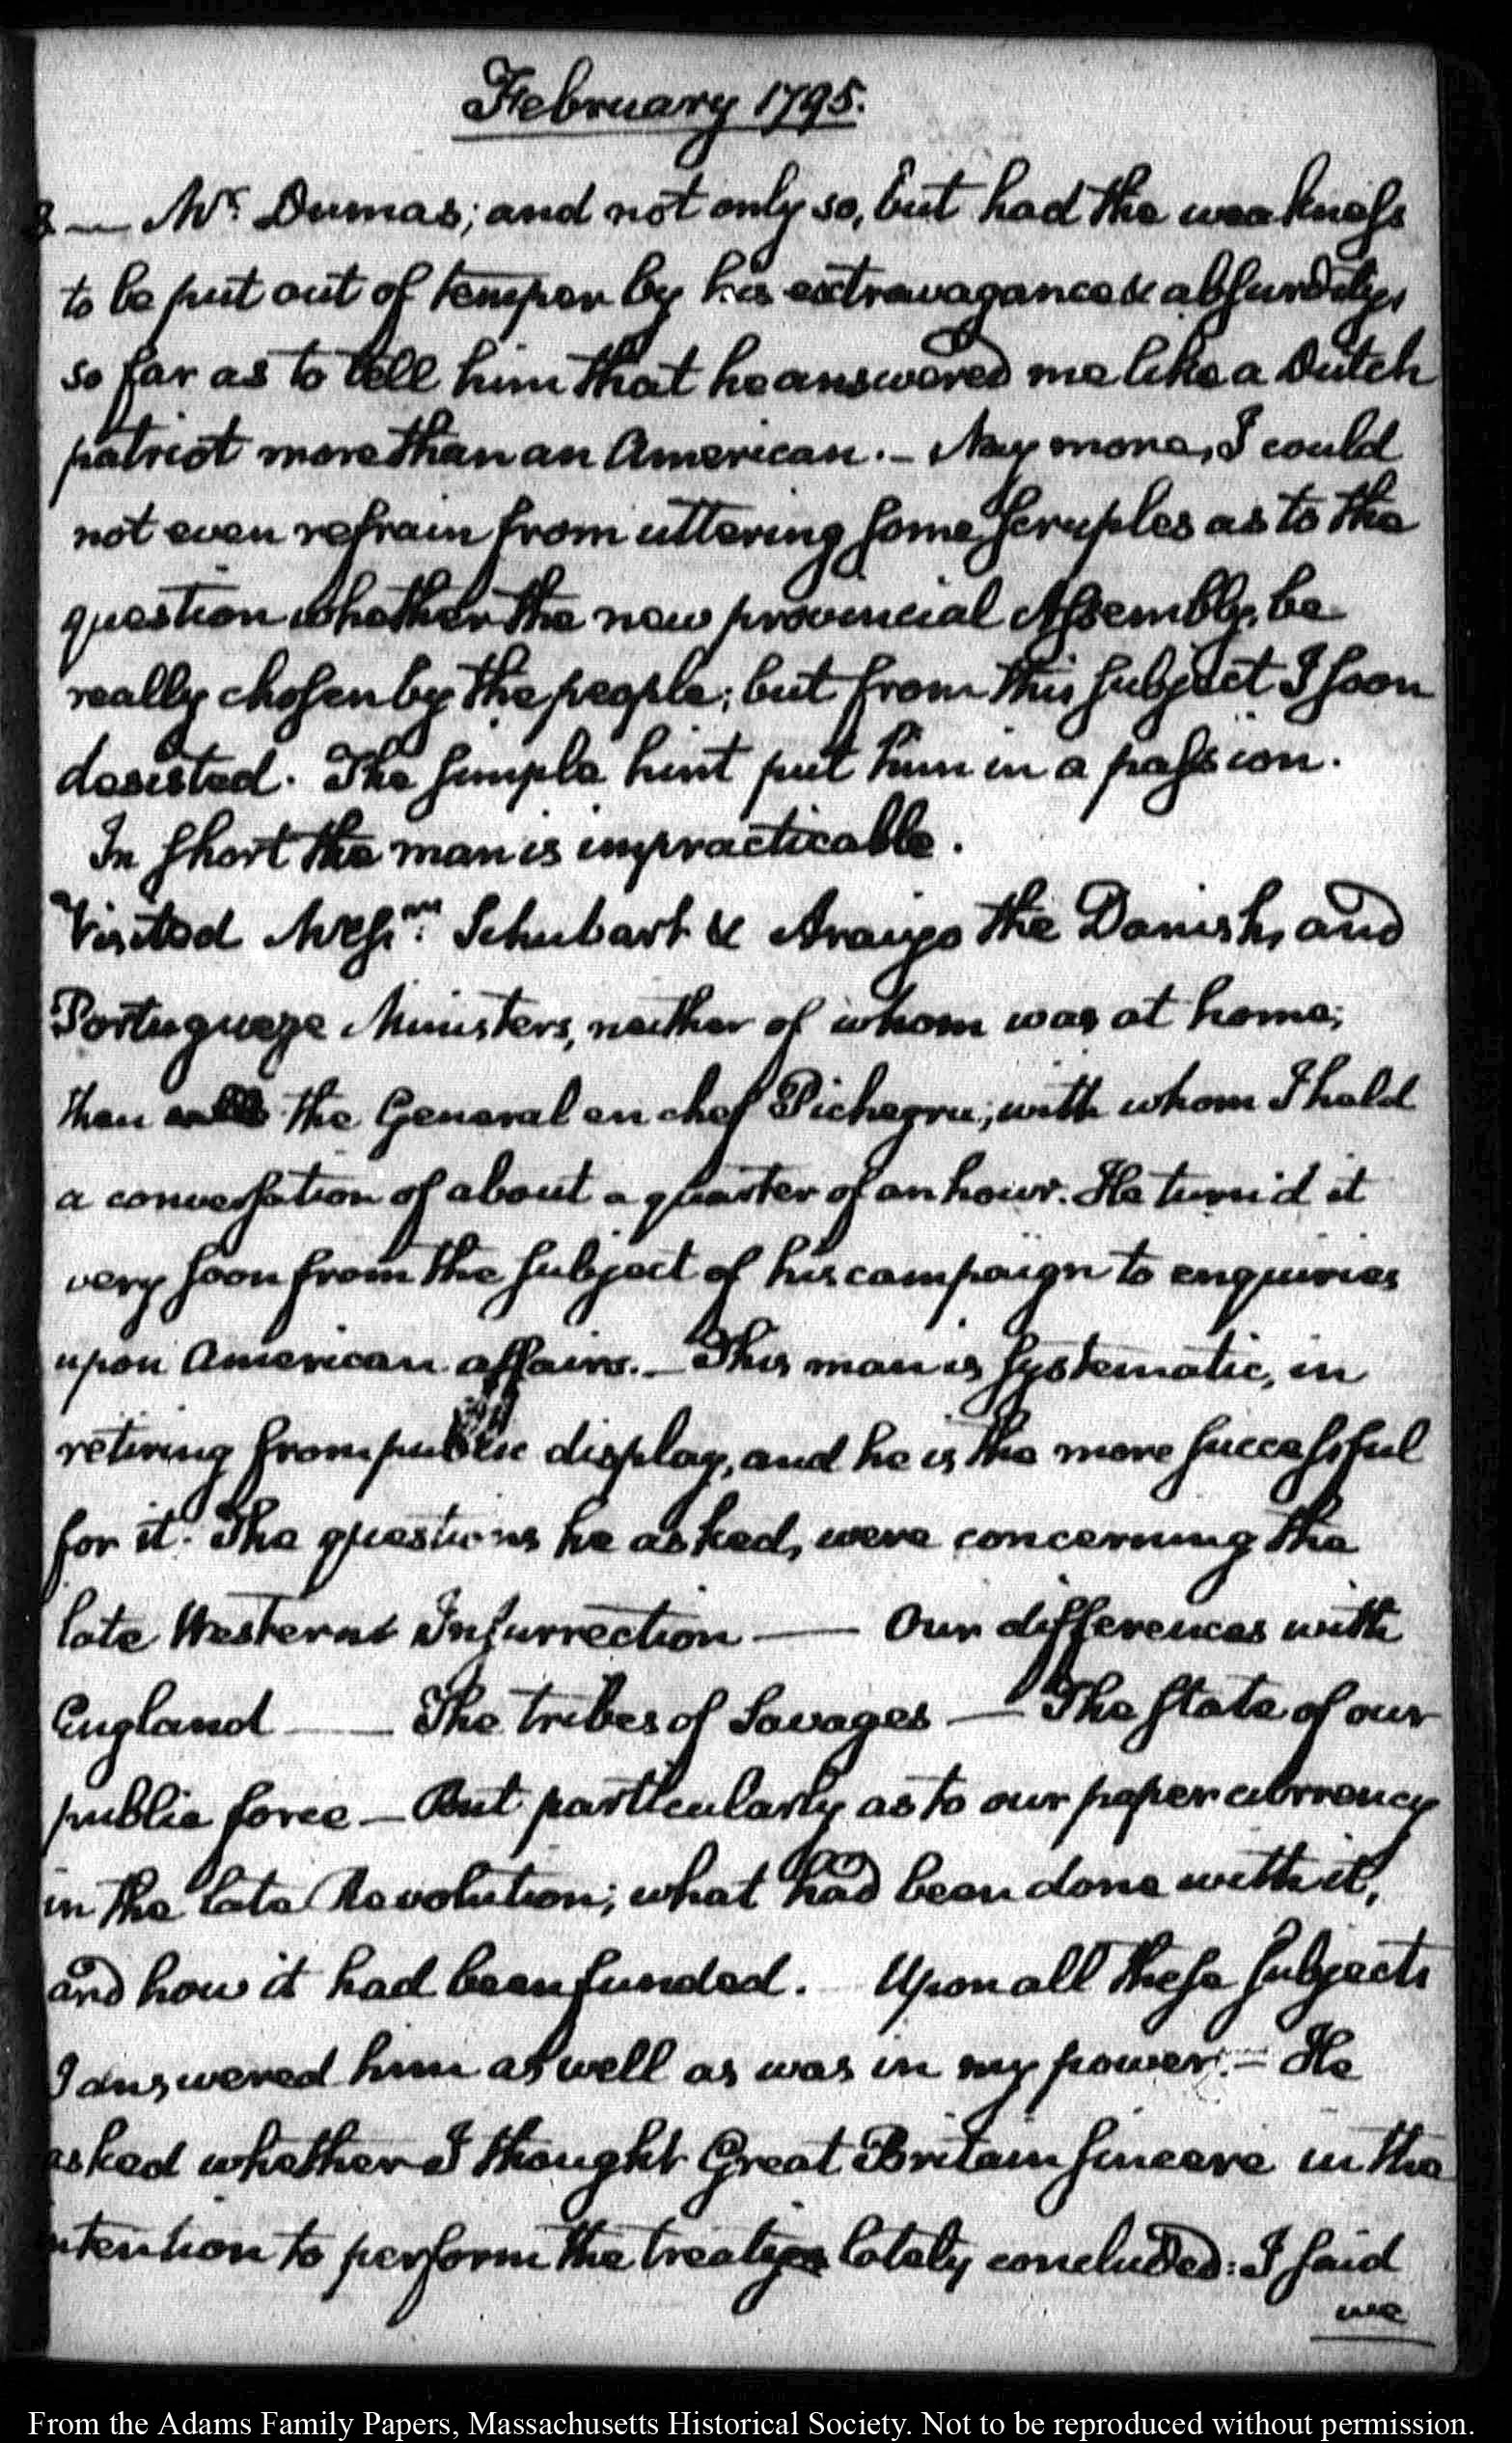 February 1795.
8 — Mr. Dumas; and not only so, but had the weakness
to be put out of temper by his extravagance & absurdity,
so far as to tell him that he answered me like a Dutch
patriot more than an American. — Nay more, I could
not even refrain from uttering some scruples as to the
question whether the new provincial Assembly, be
really chosen by the people; but from this subject I soon
desisted. The simple hint put him in a passion.
In short the man is impracticable.
Visited Messrs. Schubart & Araujo the Danish, and
Portugueze Ministers, neither of whom was at home;
then the General en chef Pichegru; with whom I held
a conversation of about a quarter of an hour. He turn'd it
very soon from the subject of his campaign to enquiries
upon American affairs. — This man is systematic, in
retiring from public display, and he is the more successful
for it. The questions he asked, were concerning the
late Western Insurrection — Our differences with
England — The tribes of Savages — The state of our
public force — But particularly as to our paper currency
in the late Revolution; what had been done with it,
and how it had been funded. Upon all these subjects
I answered him as well as was in my power. — He
asked whether I thought Great Britain sincere in the
intention to perform the treaty lately concluded: I said
we
From the Adams Family Papers, Massachusetts Historical Society. Not to be reproduced without permission.